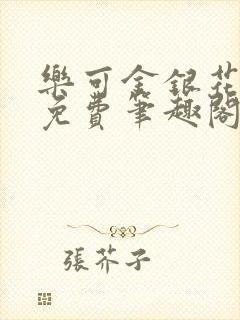 樂可金銀花
免費筆趣閣
張芥子